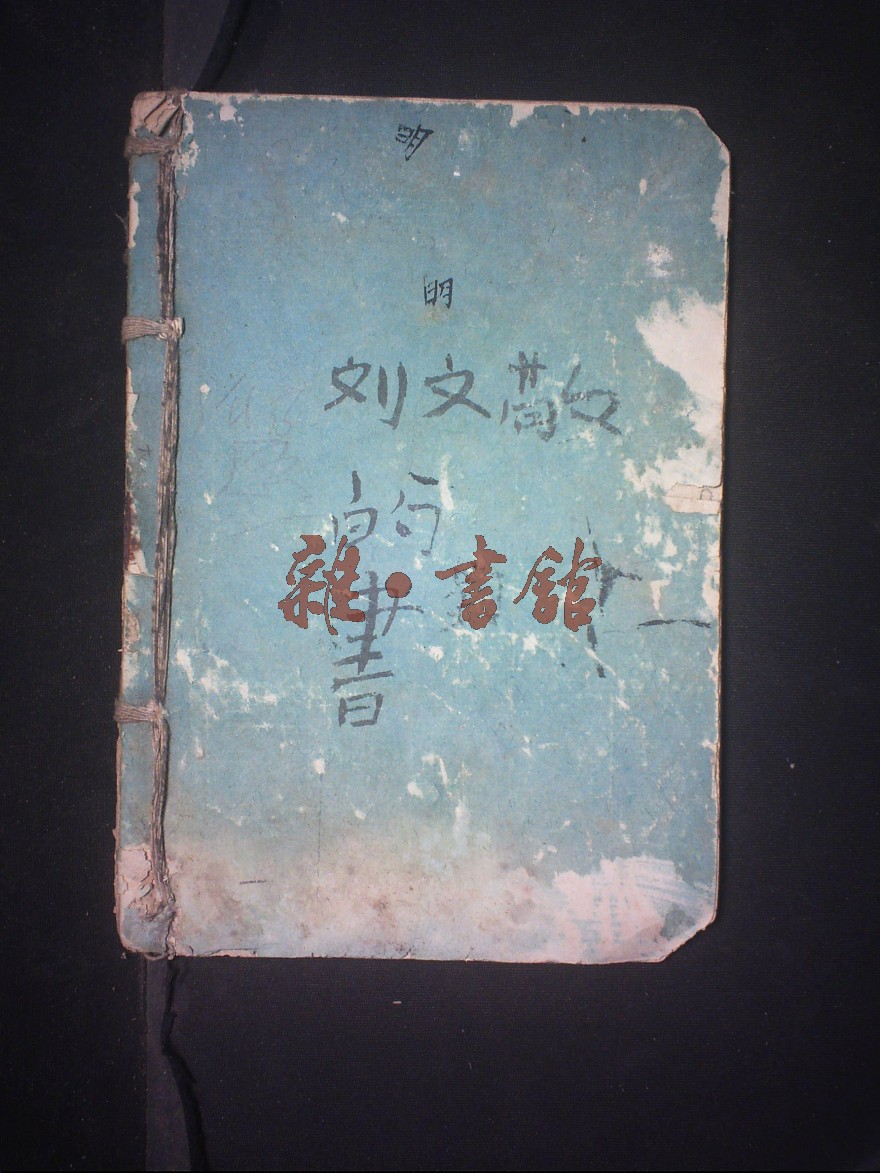 明
明
刘文敬
的
雜·書館
書